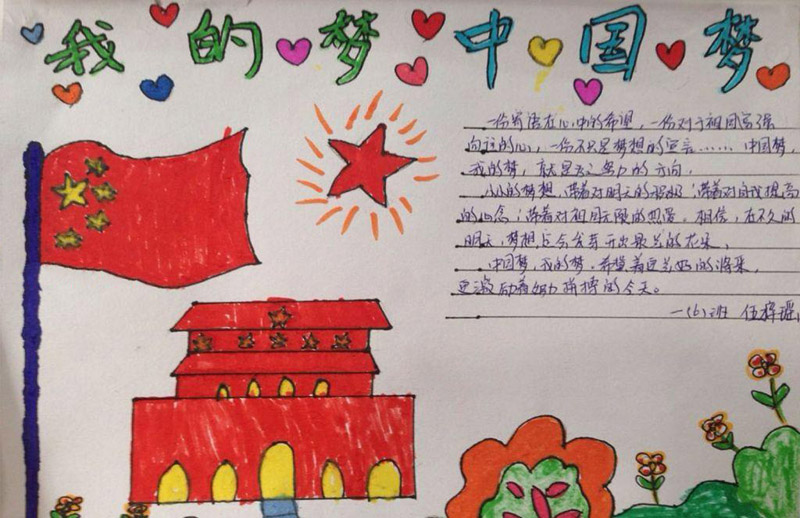 我的梦中国梦
一份寄语在心中的希望，一份对于祖国富强
向往的心，一份不只是梦想的宣言……中国梦，
我的梦，就是为之努力的方向，
小小的梦想，带着对明天的 带着对自我提高
的 念，带着对祖国无限的热爱。相信，在不久的
明天，梦想 会发芽开出最美的花朵，
中国梦，我的梦，希望着更美好的将来，
更激励着努力拼搏的今天。
一(6)班 伍梓瑶